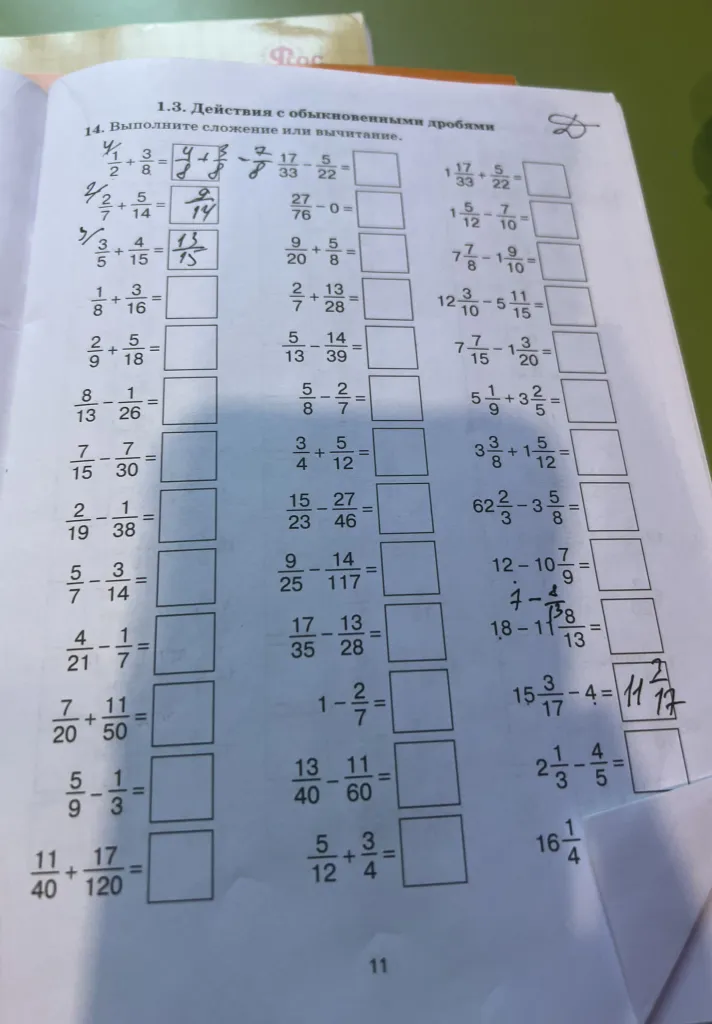 Рос
1.3. Действия с обыкновенными дробями
14. Выполните сложение или вычитание.
4/ 1/2 + 3/8 = 4/8 + 3/8 - 7/8
2/ 2/7 + 5/14 = 9/14
3/ 3/5 + 4/15 = 13/15
1/8 + 3/16 =
2/9 + 5/18 =
8/13 - 1/26 =
7/15 - 7/30 =
2/19 - 1/38 =
5/7 - 3/14 =
4/21 - 1/7 =
7/20 + 11/50 =
5/9 - 1/3 =
11/40 + 17/120 =
17/33 - 5/22 =
27/76 - 0 =
9/20 + 5/8 =
2/7 + 13/28 =
5/13 - 14/39 =
5/8 - 2/7 =
3/4 + 5/12 =
15/23 - 27/46 =
9/25 - 14/117 =
17/35 - 13/28 =
1 - 2/7 =
13/40 - 11/60 =
5/12 + 3/4 =
1 17/33 + 5/22 =
1 5/12 - 7/10 =
7 7/8 - 1 9/10 =
12 3/10 - 5 11/15 =
7 7/15 - 1 3/20 =
5 1/9 + 3 2/5 =
3 3/8 + 1 5/12 =
62 2/3 - 3 5/8 =
12 - 10 7/9 =
7 - 8/13
18 - 11 8/13 =
15 3/17 - 4 = 11 2/17
2 1/3 - 4/5 =
16 1/4
11